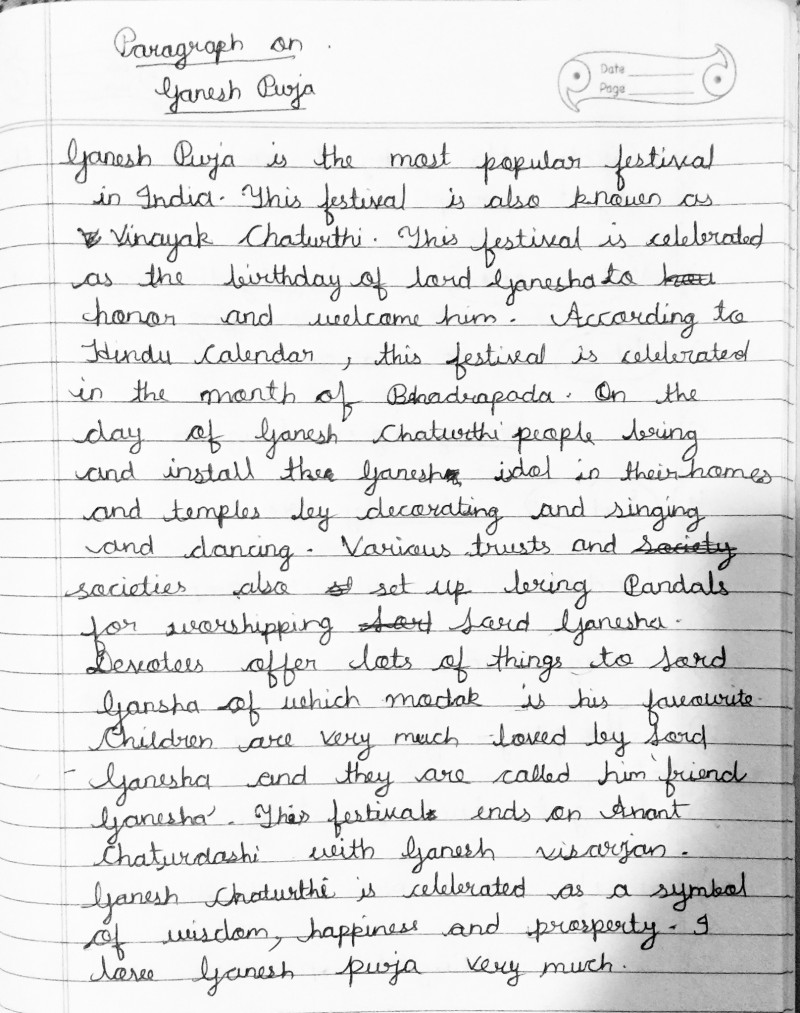 Paragraph on.
Ganesh Puja
Date
Page
Ganesh Puja is the most popular festival
in India. This festival is also known as
Vinayak Chaturthi. This festival is celebrated
as the birthday of lord Ganesha to
honor and welcome him. According to
Hindu Calendar, this festival is celebrated
in the month of Bhadrapada. On the
day of Ganesh Chaturthi people bring
and install the Ganesh idol in their homes
and temples by decorating and singing
and dancing. Various trusts and society
societies also set up bring Pandals
for worshipping Lord Ganesha.
Devotees offer lots of things to Lord
Gansha of which modak is his favourite.
Children are very much loved by Lord
Ganesha and they are called him 'friend
Ganesha'. This festival ends on Anant
Chaturdashi with Ganesh visarjan.
Ganesh Chaturthi is celebrated as a symbol
of wisdom, happiness and prosperty. I
love Ganesh puja very much.